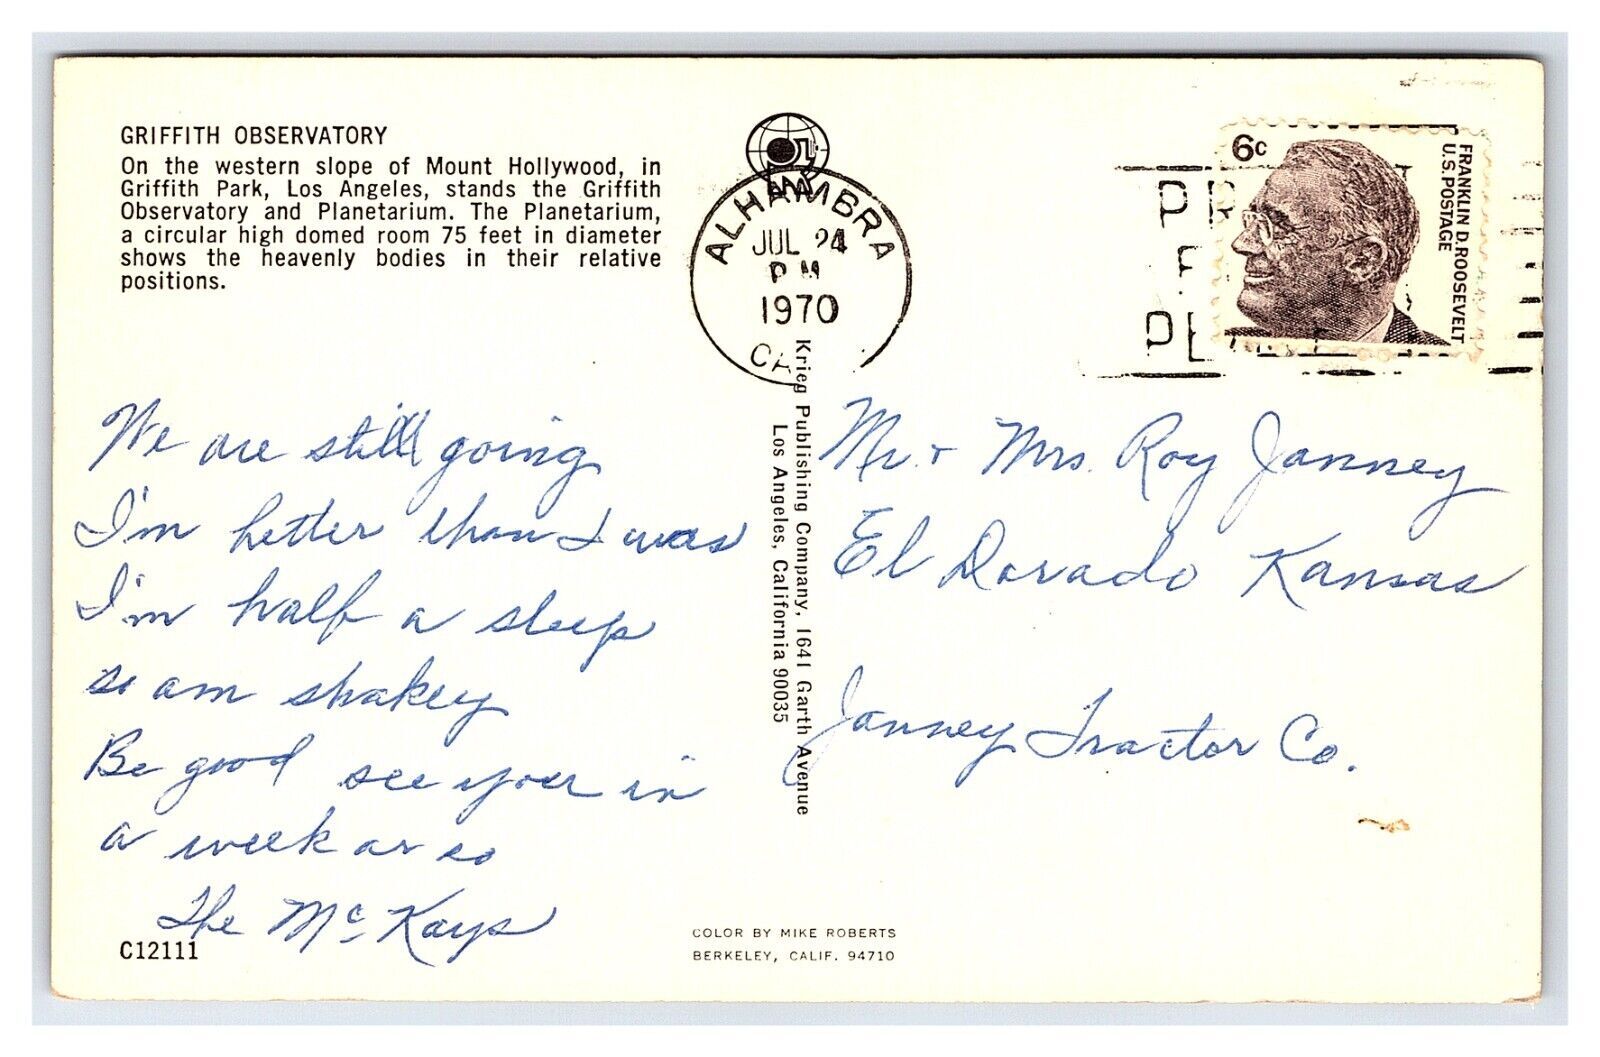 GRIFFITH OBSERVATORY
On the western slope of Mount Hollywood, in
Griffith Park, Los Angeles, stands the Griffith
Observatory and Planetarium. The Planetarium,
a circular high domed room 75 feet in diameter
shows the heavenly bodies in their relative
positions.
ALHAMBRA
JUL 24
PM
1970
6c
FRANKLIN D. ROOSEVELT
U.S. POSTAGE
We are still going
I'm better than I was
I'm half a sleep
so am shakey
Be good see you in
a week or so
The McKays
C12111
Krieg Publishing Company, 1641 Garth Avenue
Los Angeles, California 90035
Mr. + Mrs. Roy Janney
El Dorado Kansas
Janney Tractor Co.
COLOR BY MIKE ROBERTS
BERKELEY, CALIF. 94710